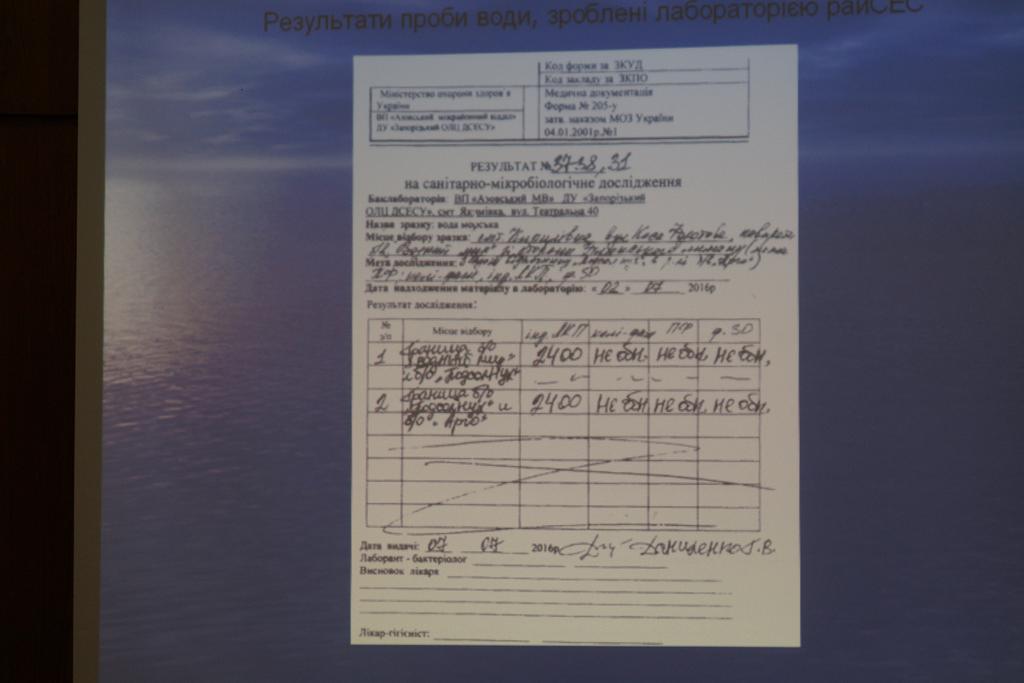 Результати проби води, зроблені лабораторією райСЕС
Код форми за ЗКУД
Код закладу за ЗКПО
Міністерство охорони здоров'я
України
ВП «Азовський міжрайонний відділ»
ДУ «Запорізький ОЛЦ ДСЕСУ»
Медична документація
Форма № 205-у
затв. наказом МОЗ України
04.01.2001р.№1
РЕЗУЛЬТАТ № 37-38, 31
на санітарно-мікробіологічне дослідження
Баклабораторія ВП «Азовський МВ» ДУ «Запорізький
ОЛЦ ДСЕСУ», смт Якимівка, вул. Театральна 40
Назва зразку: вода морська
Місце відбору зразка: смт Кирилівка вул Коса Федотова,
Мета дослідження:
ПФ, колі-фаги, інд. ЛКП, ф. 30
Дата надходження матеріалу в лабораторію: « 02 » 07 2016р
Результат дослідження:
№ з/п Місце відбору інд. ЛКП колі-фаги ПФ ф. 30
1 граница б/о 2400 не бн. не бн. не бн.
и б/о "Подсолнух"
2 граница б/о 2400 не бн. не бн. не бн.
"Подсолнух" и
б/о "Арго"
Дата видачі: 07 07 2016р. Даниленко Г.В.
Лаборант - бактеріолог
Висновок лікаря
Лікар-гігієніст: